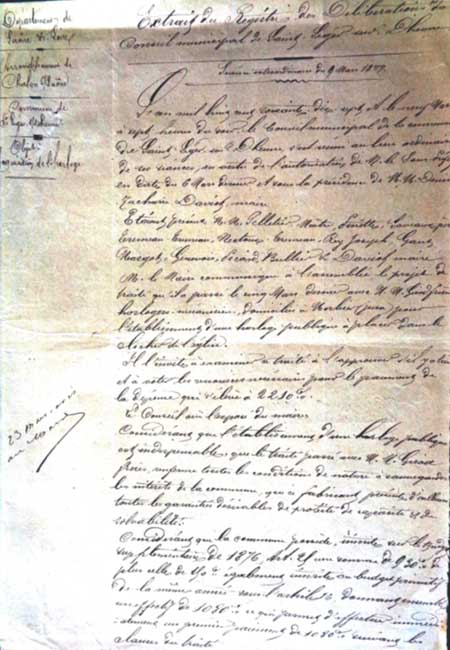 Département de
Saône & Loire
Arrondissement de
Chalon s/Saône
Commune de
St Léger s/Dheune
Objet:
de l'horloge
23 Mars
au Maire
Extrait du Registre des Délibérations du
Conseil municipal de Saint Léger sur Dheune
Séance extraordinaire du 9 Mars 1877
L'an mil huit cent soixante dix sept et le neuf Mars
à sept heures du soir le Conseil municipal de la commune
de Saint Léger s/ Dheune, s'est réuni au lieu ordinaire
de ses séances, en vertu de l'autorisation de M. le Sous-Préfet
en date du 6 Mars dernier et sous la présidence de M.
Zacharie Daviot, maire
Étaient présents M.M. Pelletier,
Roy Joseph,
Daviot maire
M. le Maire communique à l'assemblée le projet de
traité qu'il a passé le cinq Mars dernier avec M.M.
horloger mécanicien, domicilié à Morbier (Jura) pour
l'établissement d'une horloge publique à placer dans le
clocher de l'église.
Il l'invite à examiner ce traité à l'approuver s'il y a lieu
et à voter les ressources nécessaires pour le paiement de
la dépense qui s'élève à 2210 f.
Le Conseil ouï l'exposé du maire
Considérant que l'établissement d'une horloge publique
est indispensable que le traité passé avec M.M.
frères, renferme toutes les conditions de nature à sauvegarder
les intérêts de la commune, que ce fabricant présente d'ailleurs
toutes les garanties désirables de probité de capacité et de
solvabilité.
Considérant que la commune possède, inscrite sur le budget
supplémentaire de 1876 Art. 21 une somme de 930 f.
plus celle de 150 f. également inscrite au budget primitif
de la même année sous l'article
un effectif de 1080 f. ce qui permet d'effectuer
un premier paiement de 1080 f. suivant les
clauses du traité